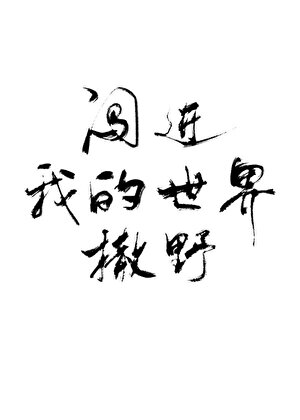 闯进
我的世界
撒野